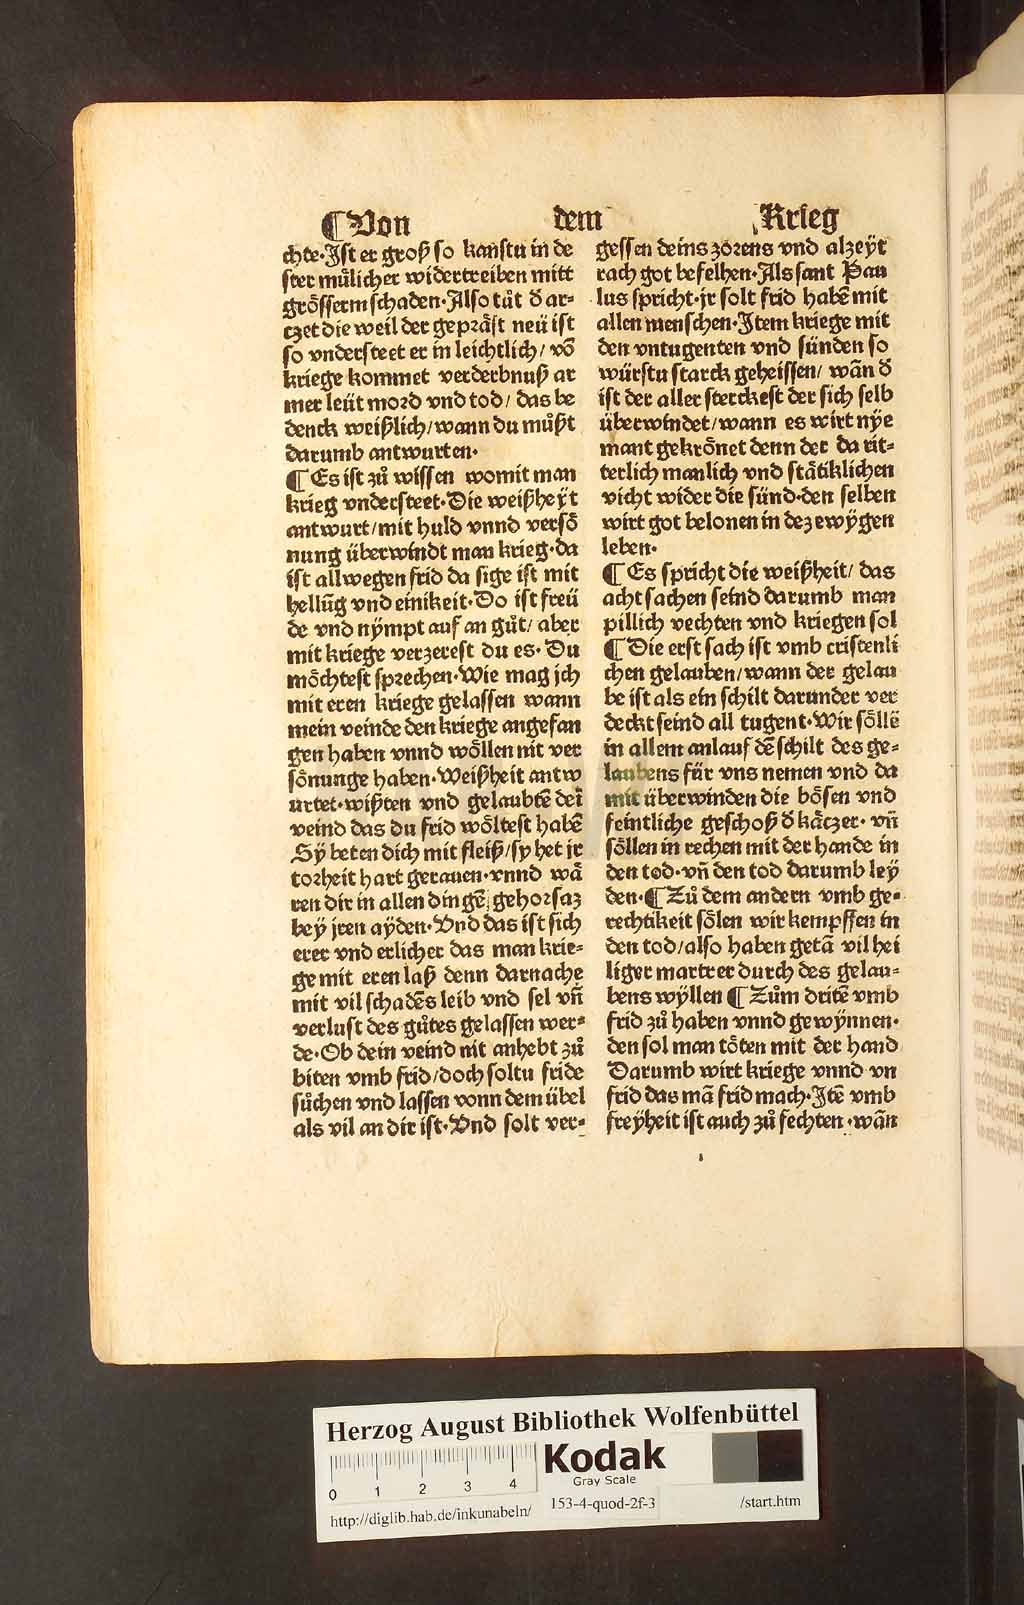 ¶Von dem Krieg
chte·Ist er groß so kanstu in de
ster mu̇licher widertreiben mitt
grösserm schaden·Also tůt d̕ ar-
czet die weil der gepräst neü ist
so vndersteet er in leichtlich/ vō
kriege kommet verderbnuß ar
mer leüt mord vnd tod/ das be
denck weißlich/wann du můst
darumb antwurten·
¶Es ist zů wissen womit man
krieg vndersteet·Die weißheÿt
antwurt/mit huld vnnd versō
nung überwindt man krieg·da
ist allwegen frid da sige ist mit
hellūg vnd einikeit·Do ist freü
de vnd nÿmpt auf an gůt/ aber
mit kriege verzerest du es·Du
möchtest sprechen·Wie mag jch
mit eren kriege gelassen wann
mein veinde den kriege angefan
gen haben vnnd wöllen nit ver
sönunge haben·Weißheit antw
urtet·wißten vnd gelaubtē dei
veind das du frid wöltest habē
Sÿ beten dich mit fleiß/sy het jr
torheit hart gerauen·vnnd wä
ren dir in allen dingē gehorsaz
beÿ jren aÿden·Vnd das ist sich
erer vnd erlicher das man krie-
ge mit eren laß denn darnache
mit vil schadēs leib vnd sel vn̄
verlust des gůtes gelassen wer-
de·Ob dein veind nit anhebt zů
biten vmb frid/doch soltu fride
sůchen vnd lassen vonn dem übel
als vil an dir ist·Vnd solt ver-
gessen deins zorens vnd alzeÿt
rach got befelhen·Als sant Pau
lus spricht·jr solt frid habē mit
allen menschen·Item kriege mit
den vntugenten vnd sünden so
würstu starck geheissen/ wān d̕
ist der aller sterckest der sich selb
überwindet/wann es wirt nÿe
mant gekrönet denn der da rit-
terlich manlich vnd stätiklichen
vicht wider die sünd·den selben
wirt got belonen in dez ewÿgen
leben·
¶Es spricht die weißheit/ das
acht sachen seind darumb man
pillich vechten vnd kriegen sol
¶Die erst sach ist vmb cristenli
chen gelauben/wann der gelau
be ist als ein schilt darunder ver
deckt seind all tugent·Wir söllē
in allem anlauf dē schilt des ge-
laubens für vns nemen vnd da
mit überwinden die bösen vnd
feintliche geschoß d̕ käczer·vn̄
söllen in rechen mit der hande in
den tod·vn̄ den tod darumb leÿ
den·¶Zů dem andern vmb ge-
rechtikeit sölen wir kempffen in
den tod/also haben getā vil hei
liger martrer durch des gelau-
bens wÿllen ¶Zům dritē vmb
frid zů haben vnnd gewÿnnen·
den sol man töten mit der hand
Darumb wirt kriege vnnd vn
frid das mā frid mach·Itē vmb
freÿheit ist auch zů fechten·wān
Herzog August Bibliothek Wolfenbüttel
Kodak
Gray Scale
0 1 2 3 4
http://diglib.hab.de/inkunabeln/ 153-4-quod-2f-3 /start.htm